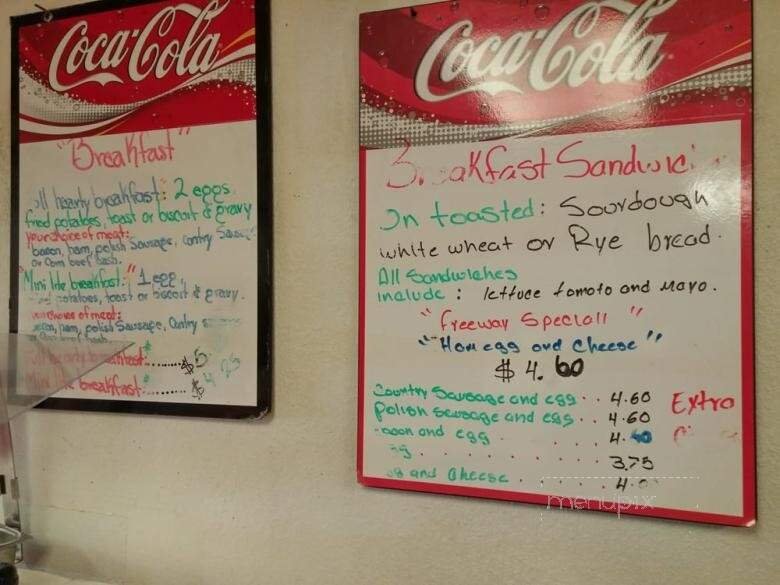 Coca-Cola
"Breakfast"
hearty breakfast: 2 eggs,
fried potatoes, toast or biscuit & gravy
your choice of meat:
bacon, ham, polish Sausage, Contry
or Corn beef hash.
"Mini lite breakfast:" 1 egg,
potatoes, toast or biscuit & gravy.
meat:
ham, polish Sausage, Contry
hearty breakfast: ......... $5
Mini lite breakfast. .. $4.25
Coca-Cola
Breakfast
On toasted: Sourdough
white wheat or Rye bread.
All Sandwiches
include : lettuce tomato and mayo.
"Freeway Speciall"
"Ham egg and Cheese"
$4.60
Country Sausage and egg .. 4.60
polish sausage and egg .. 4.60
and egg 4.60
3.75
and Cheese . . . . 4.
Extra
menupix